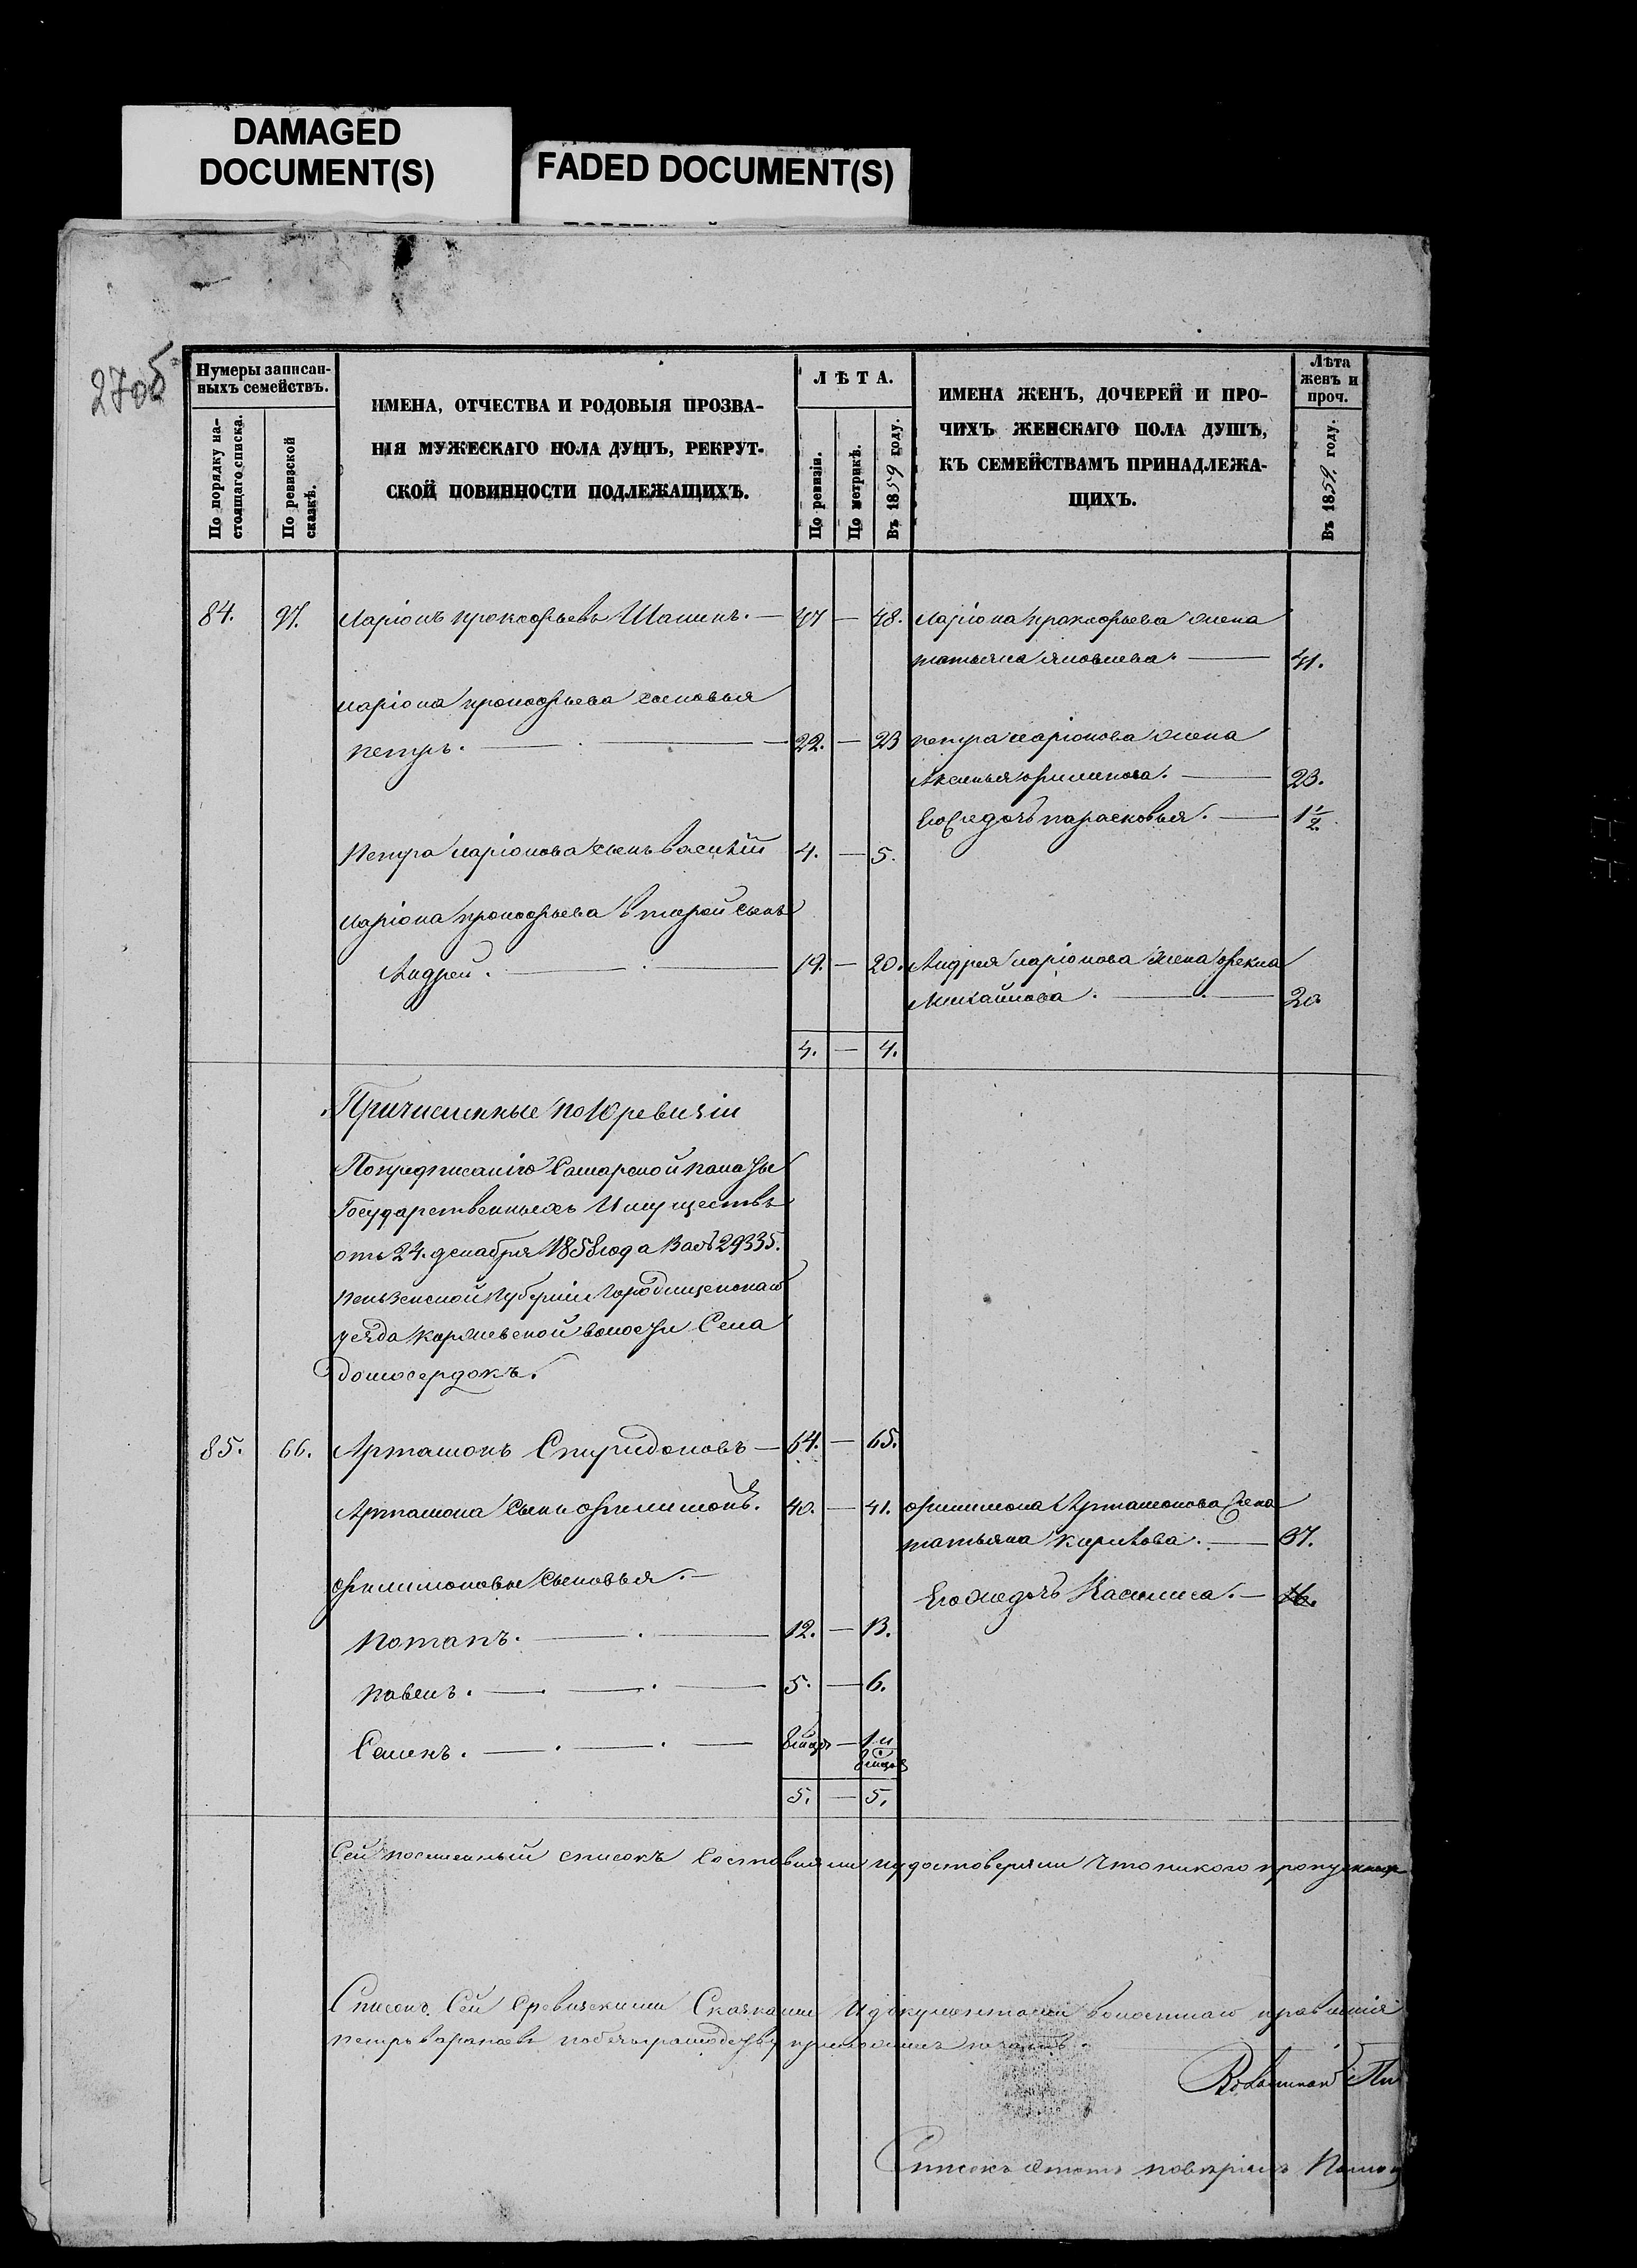 DAMAGED
DOCUMENT(S)
FADED DOCUMENT(S)
27об
Нумеры записан-
ныхъ семействъ.
По порядку на-
стоящаго списка.
По ревизской
сказкѣ.
ИМЕНА, ОТЧЕСТВА И РОДОВЫЯ ПРОЗВА-
НІЯ МУЖЕСКАГО ПОЛА ДУШЪ, РЕКРУТ-
СКОЙ ПОВИННОСТИ ПОДЛЕЖАЩИХЪ.
ЛѢТА.
По ревизіи.
По метрикѣ.
Въ 1859 году.
ИМЕНА ЖЕНЪ, ДОЧЕРЕЙ И ПРО-
ЧИХЪ ЖЕНСКАГО ПОЛА ДУШЪ,
КЪ СЕМЕЙСТВАМЪ ПРИНАДЛЕЖА-
ЩИХЪ.
Лѣта
женъ и
проч.
Въ 1859. году.
84. 97. Ларіонъ прокофьевъ Шанинъ. — 47 — 48. Ларіона прокофьева жена
татьяна яковлева. — 41.
Ларіона прокофьева сыновья
петръ. — 22. — 23 петра ларіонова жена
Аксинья филипова. — 23.
Егожедочь парасковья. — 1 1/2
Петра ларіонова сынъ василій 4. — 5.
Ларіона прокофьева второй сынъ
Андрей. — 19. — 20. Андрея ларіонова жена фекла
Михайлова. — 20
4. — 4.
Причисленные по 10 ревизіи
Попредписанію Самарской палаты
Государственныхъ Имуществъ
отъ 24. декабря 1858 года за №29335.
пензенской Губерніи Городищенскаго
уезда волости Села
85. 66. Артамонъ Спиридоновъ — 64. — 65.
Артамона сынъ филимонъ. 40. — 41. филимона Артамонова жена
татьяна кирилова. — 37.
филимоновы сыновья. —
Егожедочь Василиса. — 16.
потапъ. — 12. — 13.
павелъ. — 5. — 6.
Семенъ. — 8 мцъ — 1 и
8 мцов
5. — 5.
Сей посемейный списокъ составляли иудостоверяли что никого
Списокъ Сей Сревискими Сказками Идокументами волостнаго правленія
петръ приложилъ печать.
Волостной Пи
Списокъ этотъ повѣрялъ